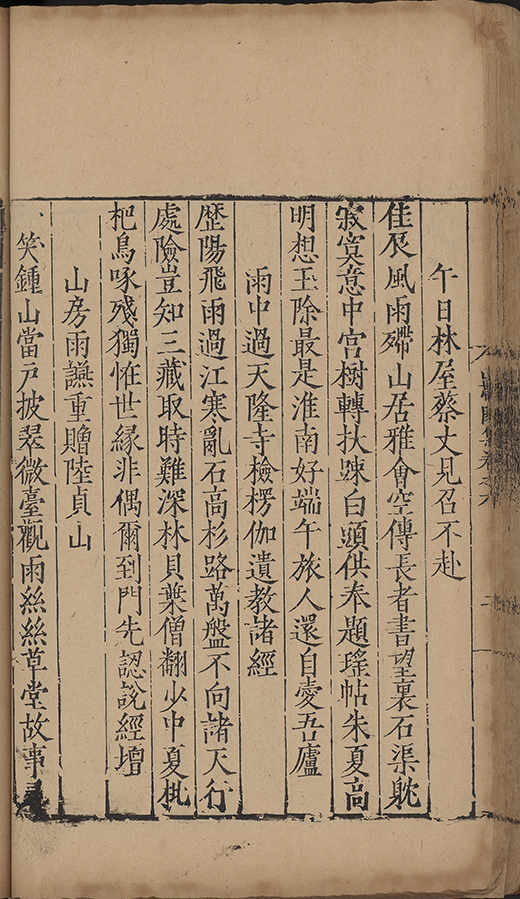 午日林屋蔡丈見召不赴
佳辰風雨殢山居雅會空傳長者書望裏石渠躭
寂寞意中宫樹轉扶踈白頭供奉題瑤帖朱夏高
明想玉除最是淮南好端午旅人還自愛吾廬
雨中過天隆寺檢楞伽遺教諸經
歷陽飛雨過江寒亂石高杉路萬盤不向諸天行
處險豈知三藏取時難深林貝葉僧翻少中夏枇
杷鳥啄殘獨恠世緣非偶爾到門先認說經壇
山房雨讌重贈陸貞山
笑鍾山當戶披翠微臺觀雨絲絲草堂故事